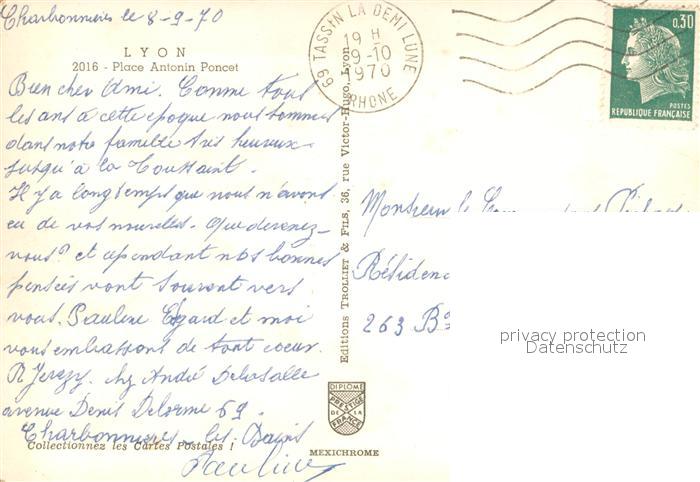 Charbonnières le 8-9-70
LYON
2016 - Place Antonin Poncet
Bien cher Ami. Comme tous
les ans à cette époque nous sommes
dans notre famille très heureux
jusqu'à la Toussaint.
Il y a longtemps que nous n'avons
eu de vos nouvelles. Que devenez-
vous? et cependant nos bonnes
pensées vont souvent vers
vous. Pauline Egard et moi
vous embrassons de tout coeur.
chez André Delasalle
avenue Denis Delorme 69.
Charbonnières-les-Bains
Pauline
Collectionnez les Cartes Postales !
Editions TROLLIET & FILS, 36, rue Victor-Hugo, Lyon
DIPLOME
PRESTIGE
DE LA
FRANCE
MEXICHROME
69 TASSIN LA DEMI LUNE
19 H
9-10
1970
RHONE
0,30
POSTES
REPUBLIQUE FRANÇAISE
Monsieur le
Résidenc
263 Bd
privacy protection
Datenschutz